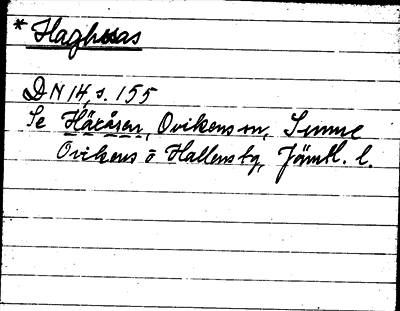 * Haghsas
DN 14, s. 155
Se Häråsen, Ovikens sn, Sunne
Ovikens o Hallens tg, Jämtl. l.